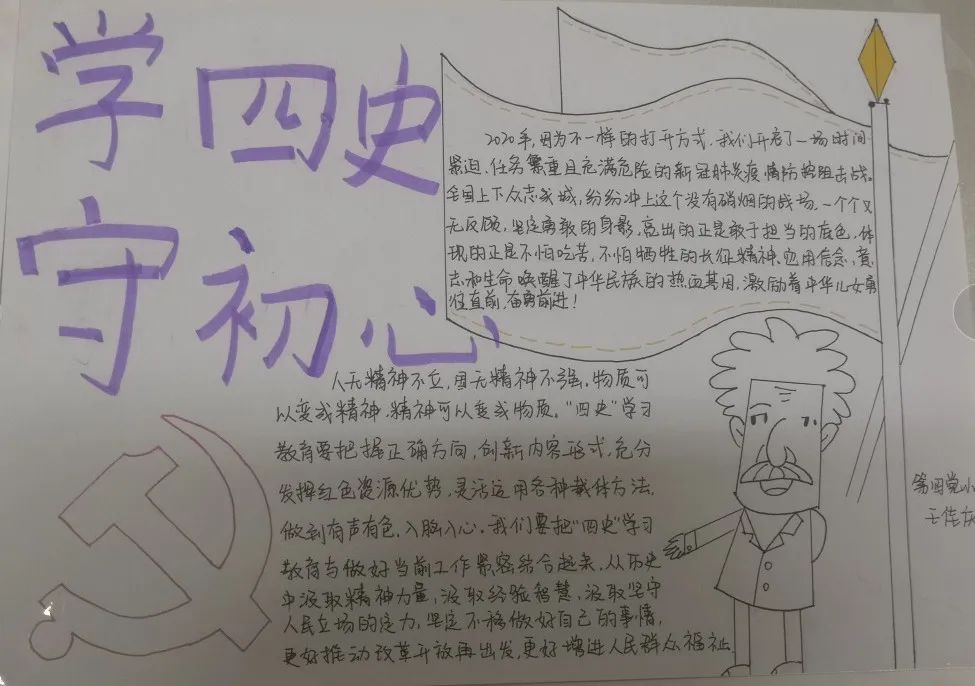 学四史
守初心
2020年,因为不一样的打开方式,我们开启了一场时间
紧迫、任务繁重且充满危险的新冠肺炎疫情防控阻击战。
全国上下众志成城,纷纷冲上这个没有硝烟的战场。一个个义
无反顾,坚定勇敢的身影,亮出的正是敢于担当的底色,体
现的正是不怕吃苦、不怕牺牲的长征精神。应用信念,意
志和生命唤醒了中华民族的热血基因,激励着中华儿女勇
往直前,奋勇前进!
人无精神不立,国无精神不强。物质可
以变成精神,精神可以变成物质。“四史”学习
教育要把握正确方向,创新内容形式,充分
发挥红色资源优势,灵活运用各种载体方法,
做到有声有色,入脑入心。我们要把“四史”学习
教育与做好当前工作紧密结合起来,从历史
中汲取精神力量,汲取经验智慧,汲取坚守
人民立场的定力,坚定不移做好自己的事情,
更好推动改革开放再出发,更好增进人民群众福祉
第四党小
王佳